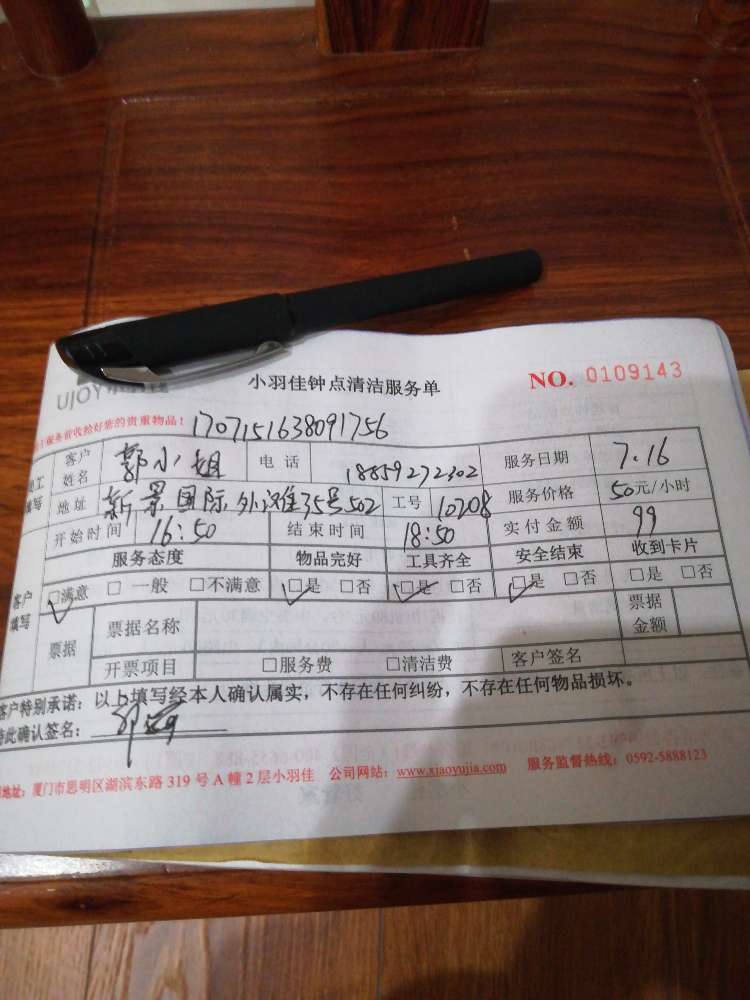 UJOY
小羽佳钟点清洁服务单 NO. 0109143
服务前收捡好您的贵重物品！ 1707151638091756
客户姓名 郭小姐 电话 18859272302 服务日期 7.16
填写 地址 新景国际外滩35号502 工号 10208 服务价格 50元/小时
开始时间 16:50 结束时间 18:50 实付金额 99
服务态度 物品完好 工具齐全 安全结束 收到卡片
客户填写 □满意 □一般 □不满意 □是 □否 □是 □否 □是 □否 □是 □否
票据 票据名称 票据金额
开票项目 □服务费 □清洁费 客户签名
客户特别承诺：以上填写经本人确认属实，不存在任何纠纷，不存在任何物品损坏。
特此确认签名：
地址：厦门市思明区湖滨东路 319 号 A 幢 2 层小羽佳 公司网站：www.xiaoyujia.com 服务监督热线：0592-5888123